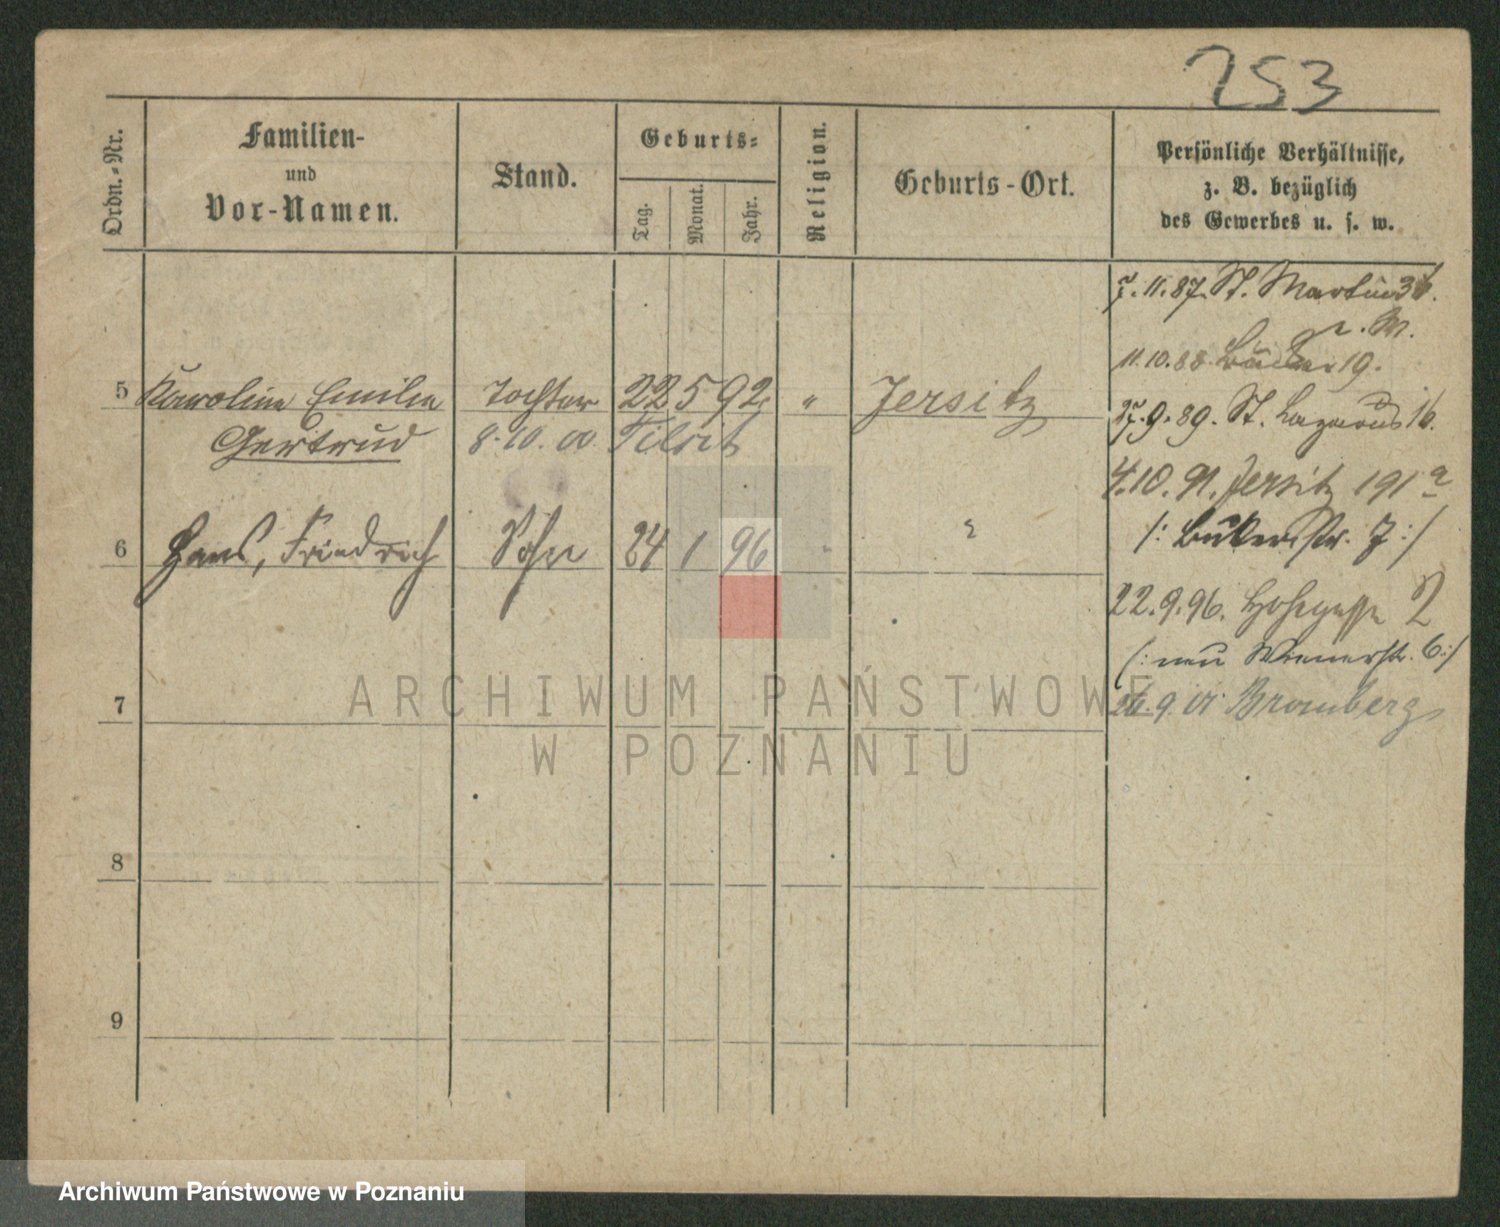 253
Ordn.-Nr.
Familien-
und
Vor-Namen.
Stand.
Geburts-
Tag.
Monat.
Jahr.
Religion.
Geburts-Ort.
Persönliche Verhältnisse,
z. B. bezüglich
des Gewerbes u. s. w.
7.11.87. St. Martin
11.10.88. 19.
5 Karoline Emilie Tochter 22 5 92 " Jersitz
27.9.89. St. Lazarus 16.
Gertrud 8.10.00. Tilsit
4.10.91. Jersitz 191a
6 Hans, Friedrich Sohn 24 1 96 "
/: Bukerstr. 7 :/
22.9.96. Hohegasse 2
/: neu Wienerstr. 6 :/
7
26.9.01. Bromberg
8
9
ARCHIWUM PAŃSTWOWE
W POZNANIU
Archiwum Państwowe w Poznaniu